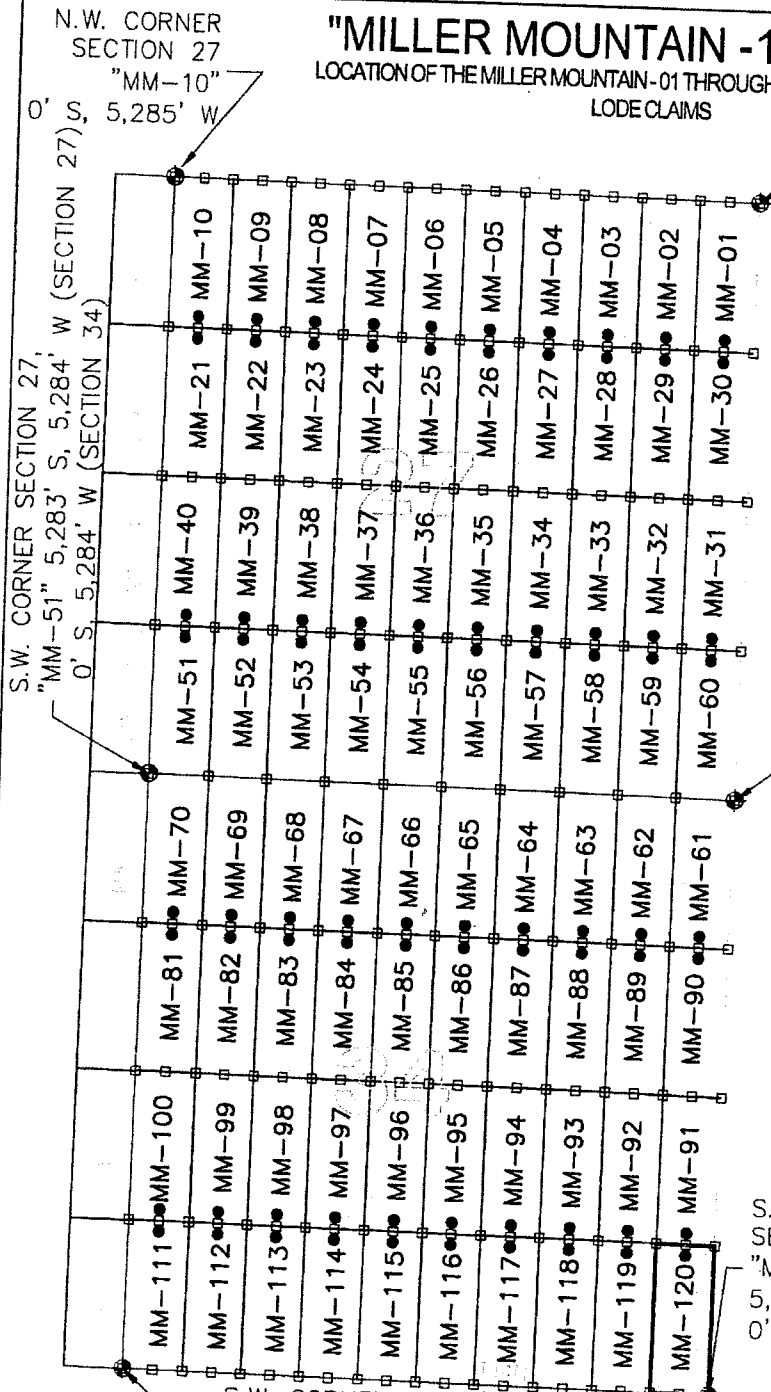 N.W. CORNER
SECTION 27
"MM-10"
0' S, 5,285' W
"MILLER MOUNTAIN -1
LOCATION OF THE MILLER MOUNTAIN-01 THROUGH
LODE CLAIMS
S.W. CORNER SECTION 27,
"MM-51" 5,283' S, 5,284' W (SECTION 27)
0' S, 5,284' W (SECTION 34)
MM-10
MM-09
MM-08
MM-07
MM-06
MM-05
MM-04
MM-03
MM-02
MM-01
MM-21
MM-22
MM-23
MM-24
MM-25
MM-26
MM-27
MM-28
MM-29
MM-30
27
MM-40
MM-39
MM-38
MM-37
MM-36
MM-35
MM-34
MM-33
MM-32
MM-31
MM-51
MM-52
MM-53
MM-54
MM-55
MM-56
MM-57
MM-58
MM-59
MM-60
MM-70
MM-69
MM-68
MM-67
MM-66
MM-65
MM-64
MM-63
MM-62
MM-61
MM-81
MM-82
MM-83
MM-84
MM-85
MM-86
MM-87
MM-88
MM-89
MM-90
34
MM-100
MM-99
MM-98
MM-97
MM-96
MM-95
MM-94
MM-93
MM-92
MM-91
MM-111
MM-112
MM-113
MM-114
MM-115
MM-116
MM-117
MM-118
MM-119
MM-120
S.
SE
"M
5,
0'
S.W. CORNER